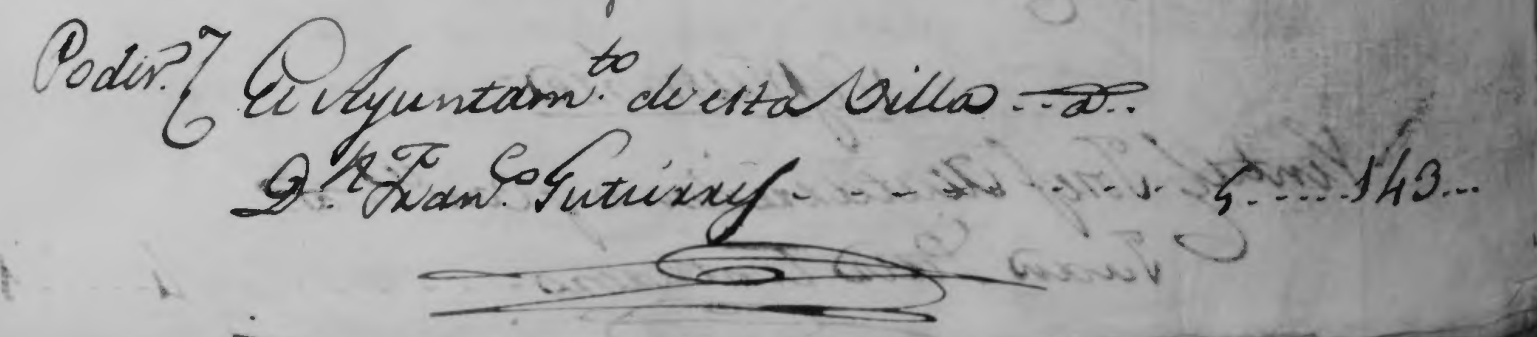 Poder. El Ayuntam.to de esta Villa - - a - -
D.n Fran.co Gutierrez 5 - - - - - 143 - - -